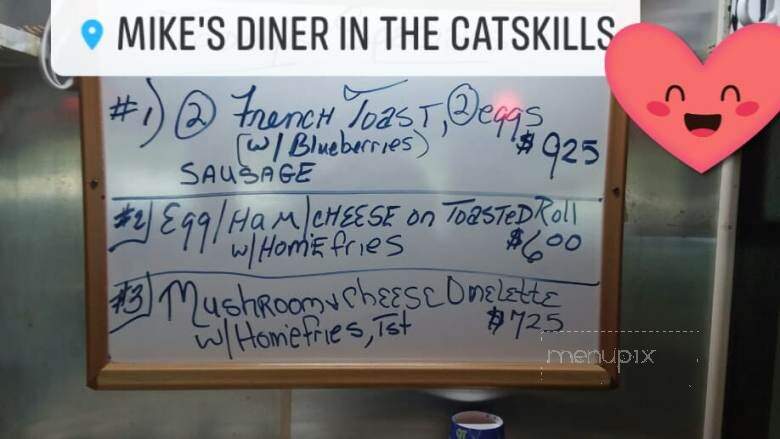 MIKE'S DINER IN THE CATSKILLS
#1) ② French Toast, ② eggs
(w/ Blueberries)
$925
SAUSAGE
#2) Egg/Ham/CHEESE on TOASTED Roll
w/HOMEfries $600
#3) Mushroom & CheESE Omelette
w/Homefries, Tst $725
menupix